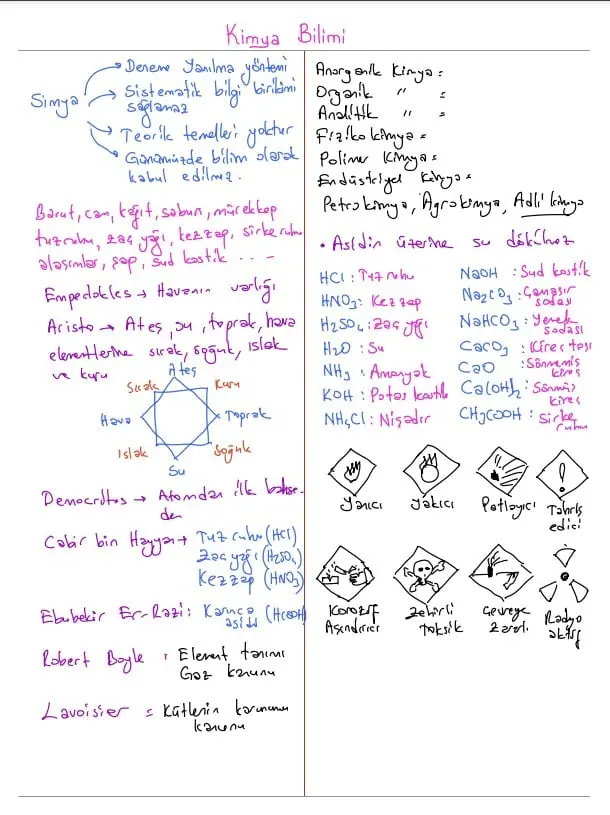 Kimya Bilimi
Simya
Deneme Yanılma yöntemi
Sistematik bilgi birikimi
sağlamaz
Teorik temelleri yoktur
Günümüzde bilim olarak
kabul edilmez.
Barut, cam, kağıt, sabun, mürekkep
tuz ruhu, zaç yağı, kezzap, sirke ruhu
alaşımlar, şap, sud kostik . . . -
Empedokles → Havanın varlığı
Aristo → Ateş, su, toprak, hava
elementlerine sıcak, soğuk, ıslak
ve kuru
Ateş
Sıcak
Kuru
Hava
Toprak
Islak
Soğuk
Su
Democritos → Atomdan ilk bahse-
den
Cabir bin Hayyan → Tuz ruhu (HCl)
Zaç yağı (H2SO4)
Kezzap (HNO3)
Ebubekir Er-Razi : Karınca (HCOOH)
asidi
Robert Boyle : Element tanımı
Gaz kanunu
Lavoisier = Kütlenin korunumu
kanunu
Anorganik Kimya =
Organik " =
Analitik " =
Fizikokimya =
Polimer Kimya =
Endüstriyel Kimya =
Petrokimya, Agrokimya, Adli kimya
• Asidin üzerine su dökülmez
HCl : Tuz ruhu
HNO3 : Kezzap
H2SO4 : Zaç yağı
H2O : Su
NH3 : Amonyak
KOH : Potas kostik
NH4Cl : Nişadır
NaOH : Sud kostik
Na2CO3 : Çamaşır
sodası
NaHCO3 : Yemek
sodası
CaCO3 : Kireç taşı
CaO : Sönmemiş
kireç
Ca(OH)2 : Sönmüş
kireç
CH3COOH : Sirke
ruhu
Yanıcı
Yakıcı
Patlayıcı
Tahriş
edici
Korozif
Aşındırıcı
Zehirli
Toksik
Çevreye
Zararlı
Radyo
aktif